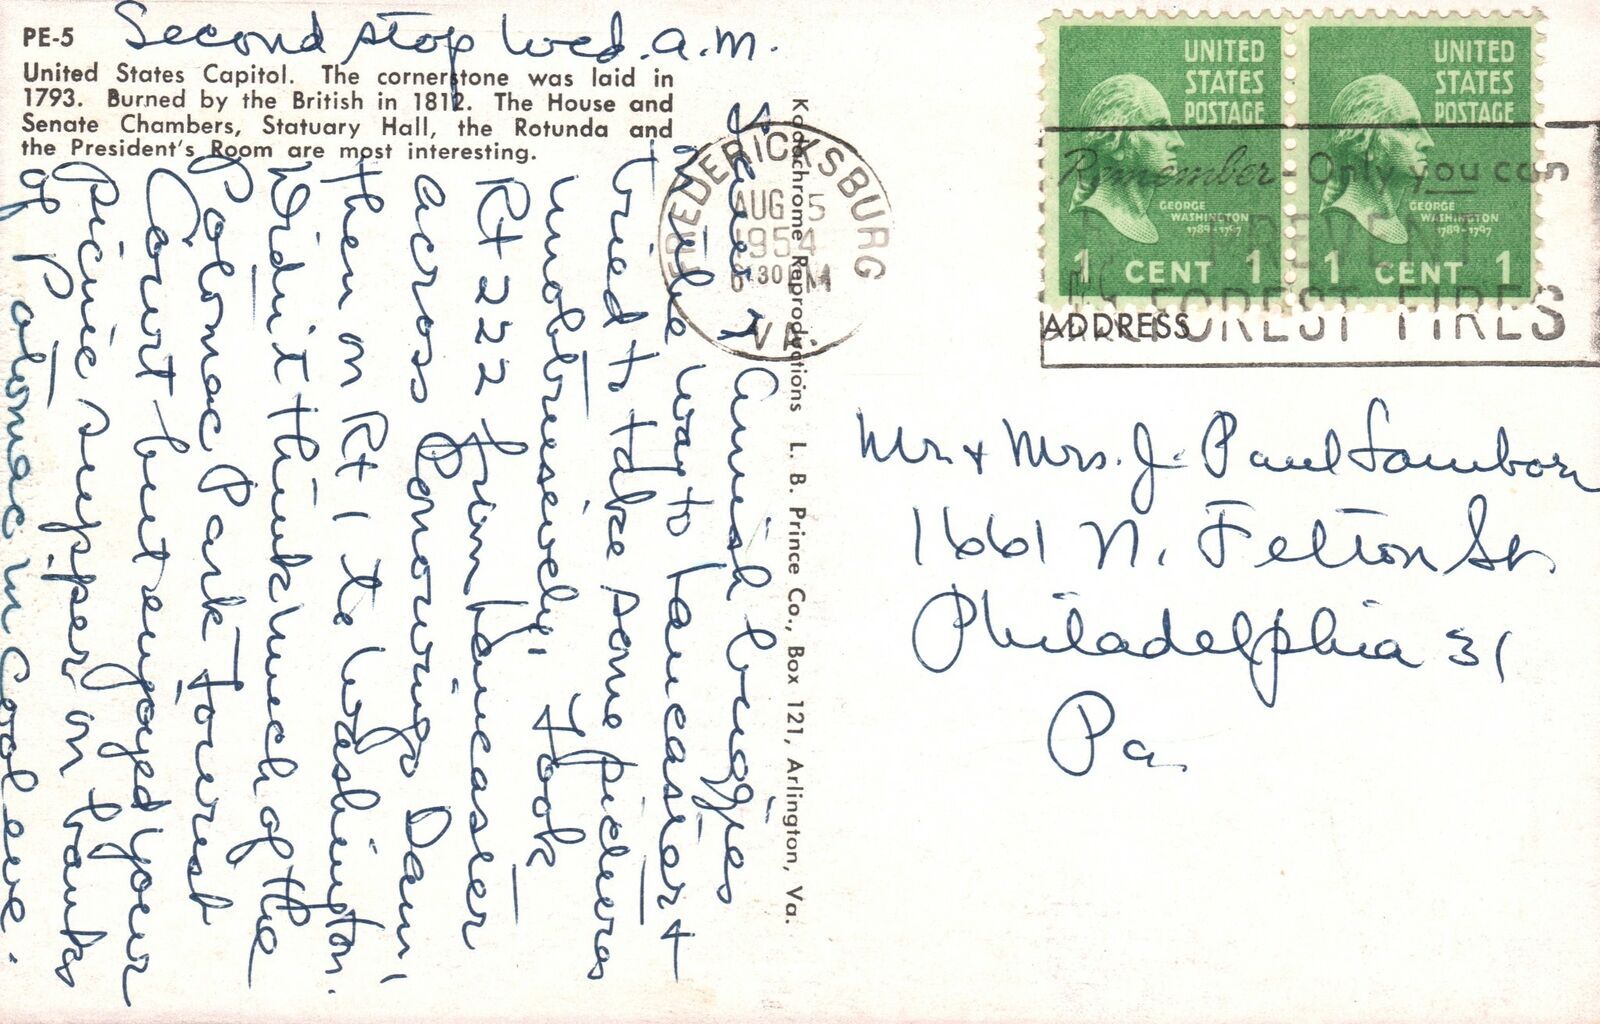 PE-5
Second stop Wed. a.m.
United States Capitol. The cornerstone was laid in
1793. Burned by the British in 1812. The House and
Senate Chambers, Statuary Hall, the Rotunda and
the President's Room are most interesting.
Saw 7 Amish buggies
while way to Lancaster +
tried to take some pictures
unobresevely. Took
Rt 222 from Lancaster
across Conowingo Dam,
then on Rt 1 to Washington.
Didn't think much of the
Potomac Park Tourist
Court but enjoyed your
picnic supper on banks
of Potomac in cool eve.
Kodachrome Reproductions L. B. Prince Co., Box 121, Arlington, Va.
FREDERICKSBURG
AUG 5
1954
6 30 PM
VA.
UNITED
STATES
POSTAGE
GEORGE
WASHINGTON
1789-1797
1 CENT 1
UNITED
STATES
POSTAGE
GEORGE
WASHINGTON
1789-1797
1 CENT 1
Remember - Only you can
PREVENT
FOREST FIRES
ADDRESS
Mr. + Mrs. J. Paul Lamborn
1661 N. Felton St.
Philadelphia 31
Pa.